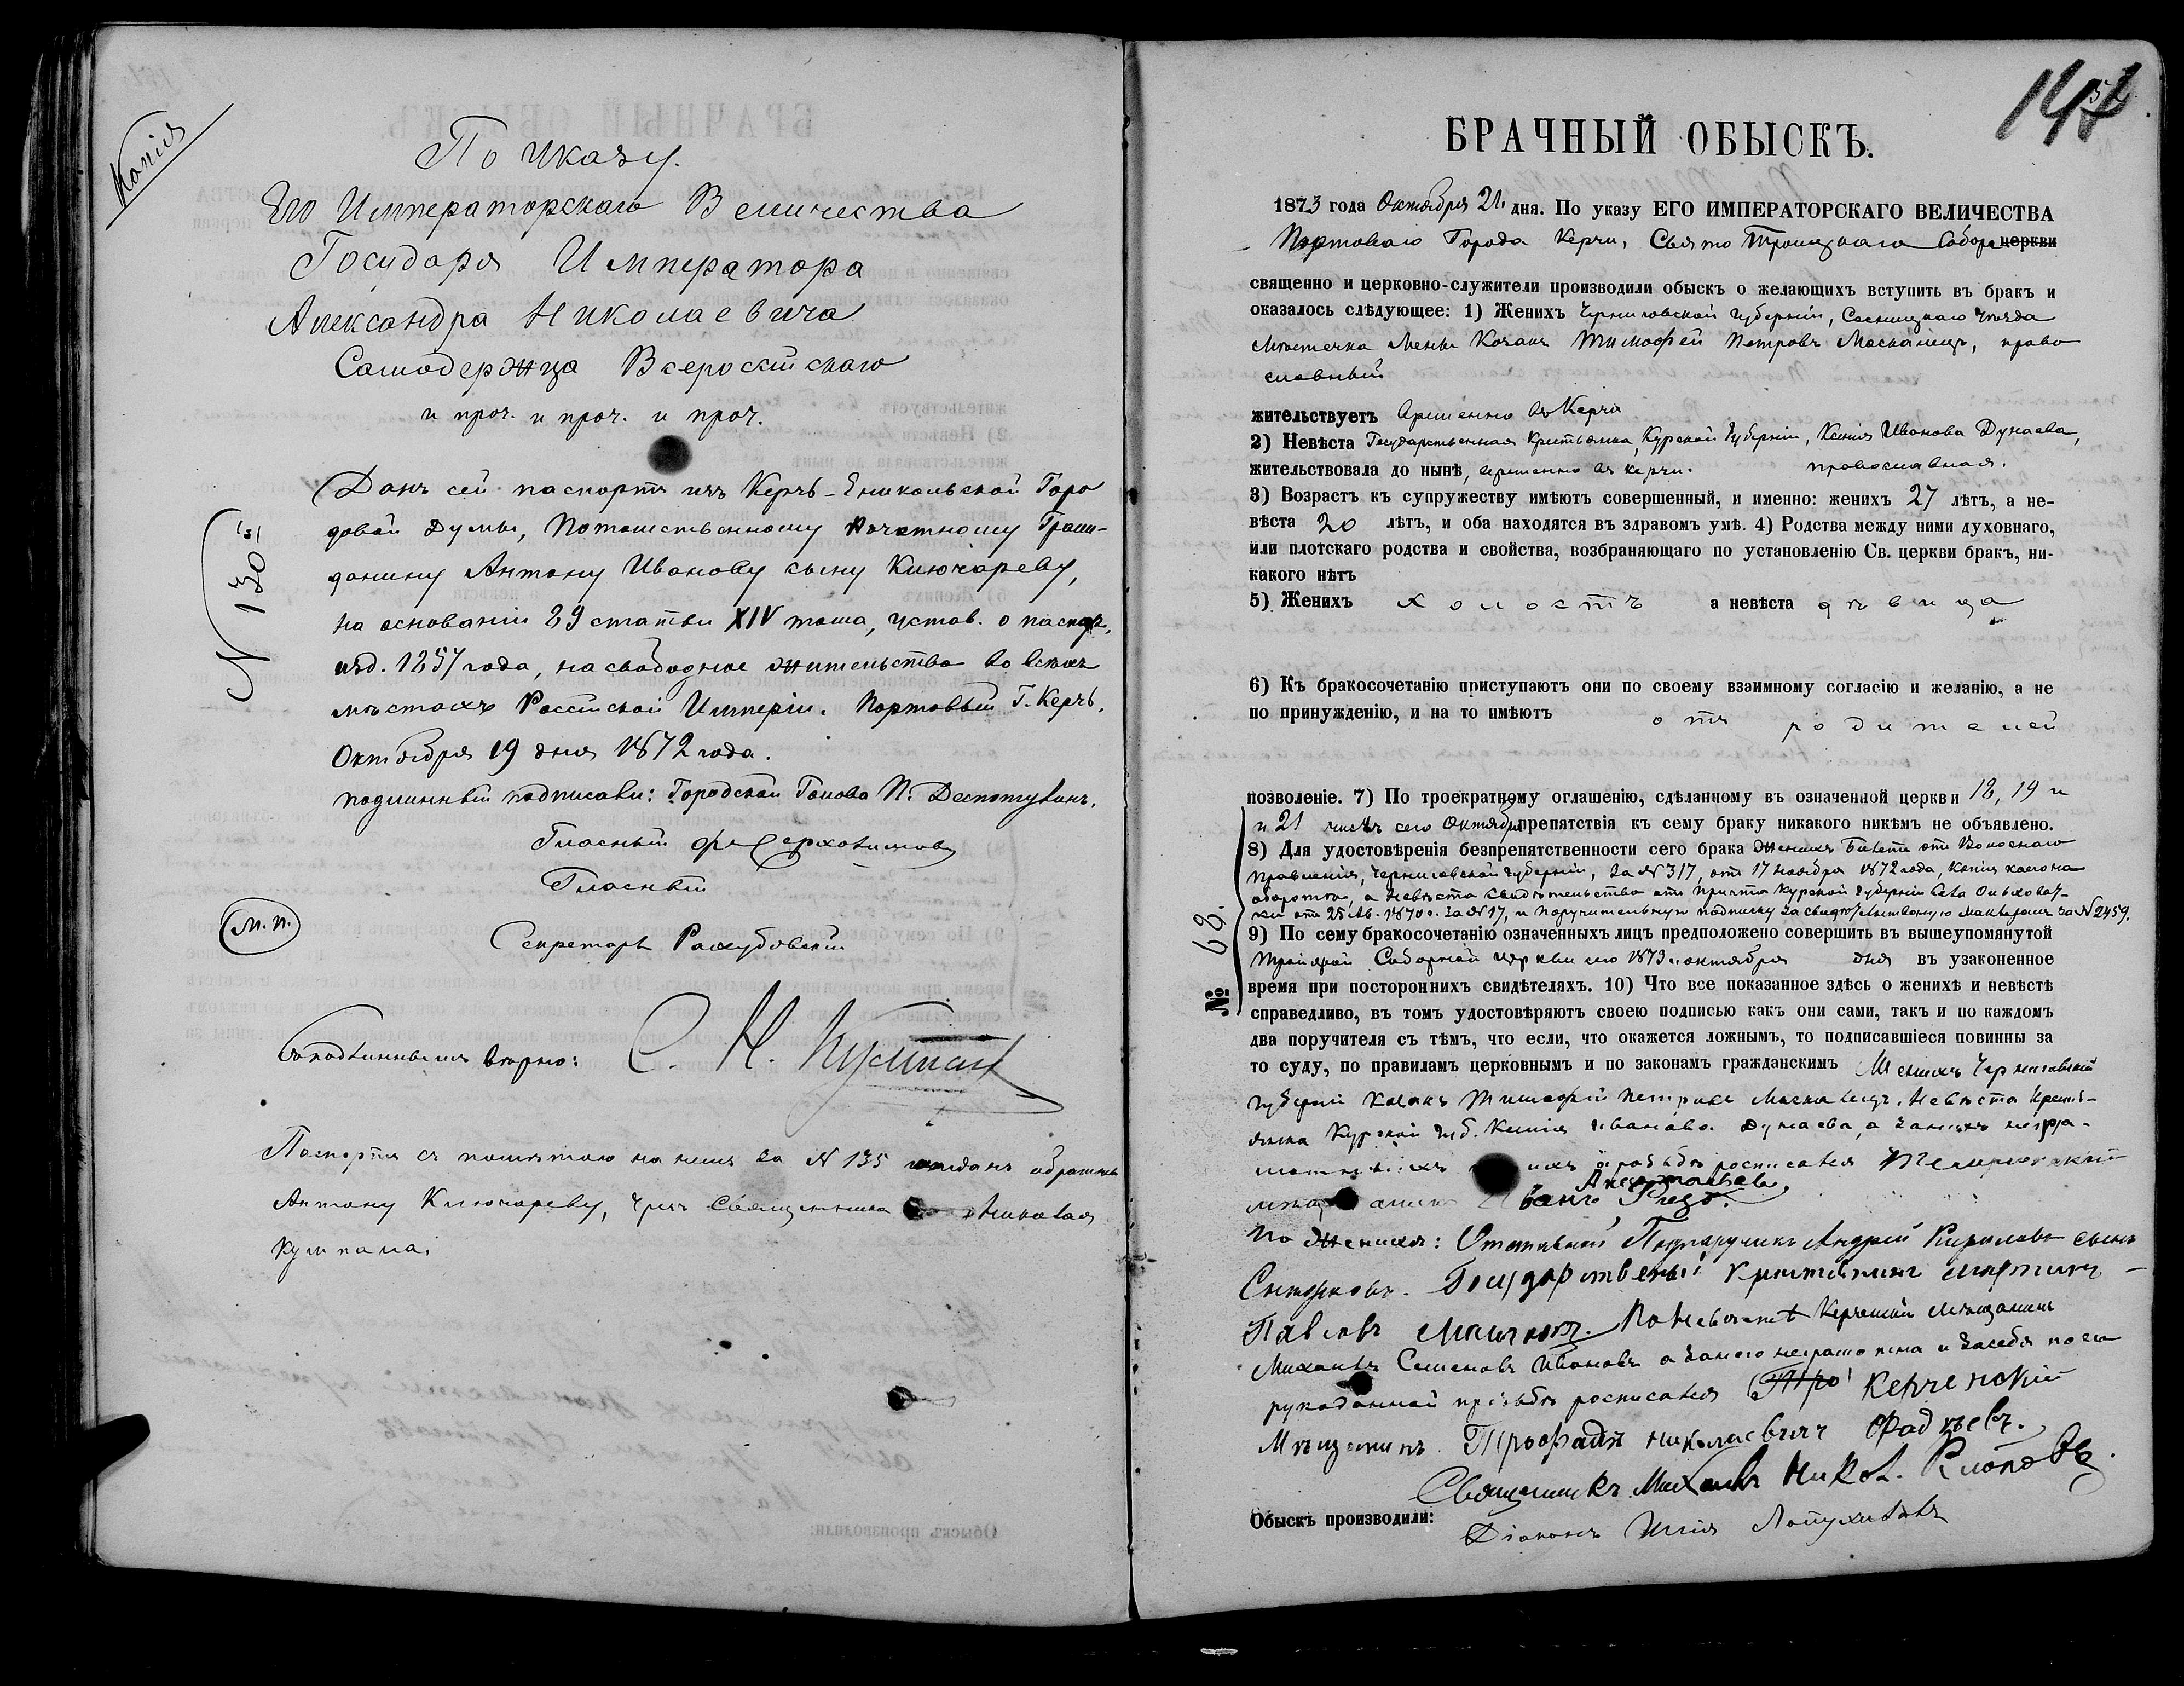 Копія
По указу.
Его Императорскаго Величества
Государя Императора
Александра Николаевича
Самодержца Всероссійскаго
и проч. и проч. и проч.
№ 135
Данъ сей паспортъ изъ Керчь-Еникольской Горо
довой Думы, Потомственному Почетному Граж-
данину Антону Иванову сыну Ключареву,
на основаніи 29 статьи XIV тома, устав. о паспор.
изд. 1857 года, на свободное жительство во всѣхъ
мѣстахъ Россійской Имперіи. Портовый Г. Керчь,
Октября 19 дня 1872 года.
подлинный подписали: Городской Голова П. Деспотулинъ.
Гласный
Гласный
М. П.
Секретарь
Съ подлиннымъ вѣрно: С. Н. Кумпан
Паспортъ съ помѣткою на немъ за № 135 выданъ обратно
Антону Ключареву, чрезъ Священника Николая
Кумпана.
БРАЧНЫЙ ОБЫСКЪ.
1873 года Октября 21. дня. По указу ЕГО ИМПЕРАТОРСКАГО ВЕЛИЧЕСТВА
Портоваго Города Керчи, Свято Троицкаго Собора церкви
священно и церковно-служители производили обыскъ о желающихъ вступить въ бракъ и
оказалось слѣдующее: 1) Женихъ Черниговской губерніи, Сосницкаго уѣзда
Мѣстечка Мены Козакъ Тимофей Петровъ Москалецъ, право
славный
жительствуетъ временно въ Керчи
2) Невѣста Государственная Крестьянка, Курской Губерніи, Ксенія Иванова Дунаева,
жительствовала до нынѣ, временно въ Керчи. православная.
3) Возрастъ къ супружеству имѣютъ совершенный, и именно: женихъ 27 лѣтъ, а не-
вѣста 20 лѣтъ, и оба находятся въ здравомъ умѣ. 4) Родства между ними духовнаго,
или плотскаго родства и свойства, возбраняющаго по установленію Св. церкви бракъ, ни-
какого нѣтъ
5) Женихъ холостъ а невѣста дѣвица
6) Къ бракосочетанію приступаютъ они по своему взаимному согласію и желанію, а не
по принужденію, и на то имѣютъ отъ родителей
позволеніе. 7) По троекратному оглашенію, сдѣланному въ означенной церкви 18, 19 и
и 21 числъ сего Октября препятствія къ сему браку никакого никѣмъ не объявлено.
8) Для удостовѣренія безпрепятственности сего брака женихъ Билетъ отъ Волоснаго
Правленія, Черниговской губерніи, за № 317, отъ 17 Ноября 1872 года, Копія коего на
оборотѣ, а Невѣста Свидѣтельство отъ Причта Курской губерніи Села
отъ 25 1870 г. за № 17, и поручительную подписку за № 2459.
№ 68.
9) По сему бракосочетанію означенныхъ лицъ предположено совершить въ вышеупомянутой
Троицкой Соборной церкви сего 1873 г. октября дня въ узаконенное
время при постороннихъ свидѣтеляхъ. 10) Что все показанное здѣсь о женихѣ и невѣстѣ
справедливо, въ томъ удостовѣряютъ своею подписью какъ они сами, такъ и по каждомъ
два поручителя съ тѣмъ, что если, что окажется ложнымъ, то подписавшіеся повинны за
то суду, по правиламъ церковнымъ и по законамъ гражданскимъ Женихъ Черниговской
губерніи Козакъ Тимофей Петровъ Москалецъ. Невѣста Кресть-
янка Курской губ. Ксенія Иванова Дунаева, а за нихъ негра-
мотныхъ по ихъ просьбѣ росписался
Иванъ
По женихѣ: Отставной Подпоручикъ Андрей Кириловъ сынъ
Государственый крестьянинъ мартинъ
Павловъ По невѣстѣ Керченскій Мѣщанинъ
Михаилъ Семеновъ Ивановъ а за него неграмотна и за себя по его
рукоданной просьбѣ росписался Тро Керченскій
Мѣщанинъ Николаевичъ Фадѣевъ.
Священникъ Михаилъ Никол. Клоповъ.
Обыскъ производили:
Діаконъ Илія